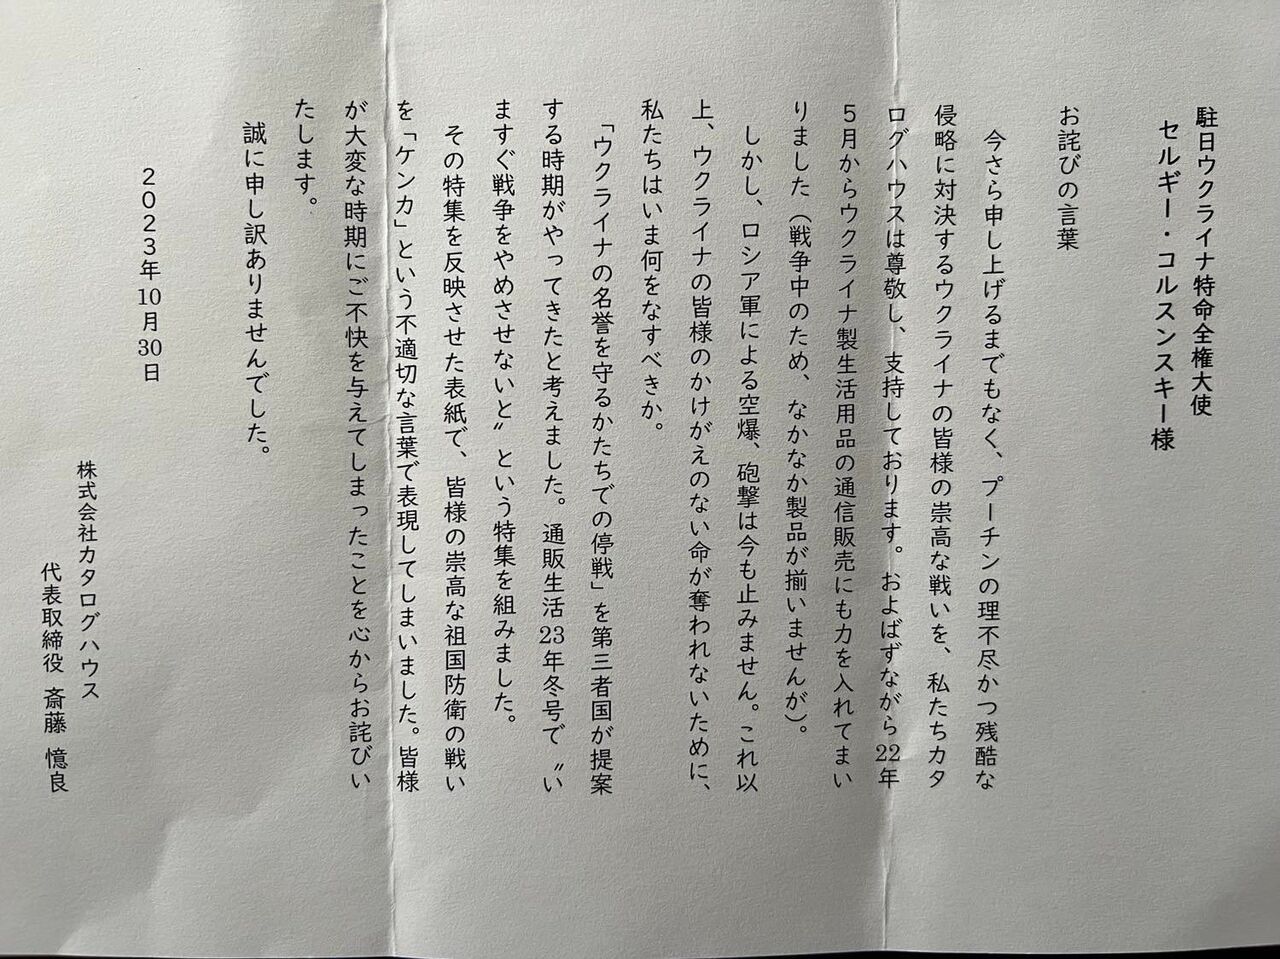 駐日ウクライナ特命全権大使
セルギー・コルスンスキー様
お詫びの言葉
今さら申し上げるまでもなく、プーチンの理不尽かつ残酷な
侵略に対決するウクライナの皆様の崇高な戦いを、私たちカタ
ログハウスは尊敬し、支持しております。およばずながら22年
5月からウクライナ製生活用品の通信販売にも力を入れてまい
りました(戦争中のため、なかなか製品が揃いませんが)。
しかし、ロシア軍による空爆、砲撃は今も止みません。これ以
上、ウクライナの皆様のかけがえのない命が奪われないために、
私たちはいま何をなすべきか。
「ウクライナの名誉を守るかたちでの停戦」を第三者国が提案
する時期がやってきたと考えました。通販生活23年冬号で〝い
ますぐ戦争をやめさせないと〟という特集を組みました。
その特集を反映させた表紙で、皆様の崇高な祖国防衛の戦い
を「ケンカ」という不適切な言葉で表現してしまいました。皆様
が大変な時期にご不快を与えてしまったことを心からお詫びい
たします。
誠に申し訳ありませんでした。
2023年10月30日
株式会社カタログハウス
代表取締役 斎藤 憶良